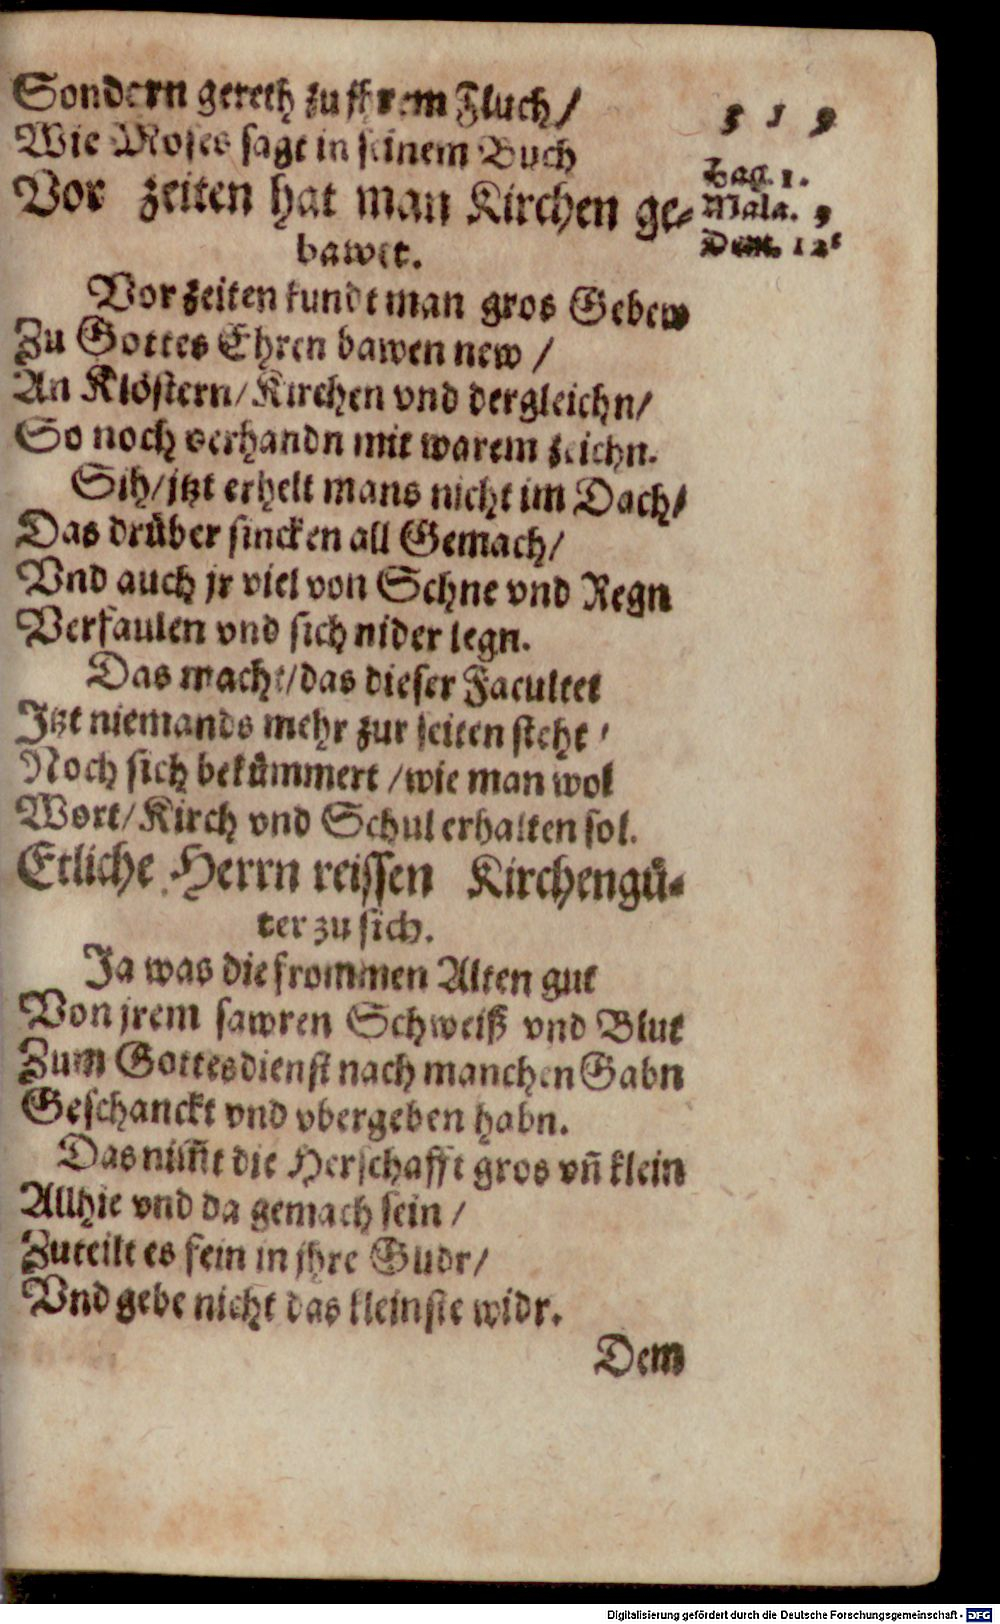 Sondern gereth zu jhrem Fluch /
Wie Moses sagt in seinem Buch
319
Hag. 1.
Mala. 3
Deut. 12
Vor zeiten hat man Kirchen ge-
bawet.
Vor zeiten kundt man gros Gebew
Zu Gottes Ehren bawen new /
An Klöstern / Kirchen vnd dergleichn /
So noch verhandn mit warem zeichn.
Sih / jtzt erhelt mans nicht im Dach /
Das drüber sincken all Gemach /
Vnd auch jr viel von Schne vnd Regn
Verfaulen vnd sich nider legn.
Das macht / das dieser Facultet
Jtzt niemands mehr zur seiten steht /
Noch sich bekümmert / wie man wol
Wort / Kirch vnd Schul erhalten sol.
Etliche Herrn reissen Kirchengü-
ter zu sich.
Ja was die frommen Alten gut
Von jrem sawren Schweiß vnd Blut
Zum Gottesdienst nach manchen Gabn
Geschanckt vnd vbergeben habn.
Das nim̃t die Herschafft gros vñ klein
Allhie vnd da gemach sein /
Zuteilt es fein in jhre Güdr /
Vnd gebe nicht das kleinste widr.
Dem
Digitalisierung gefördert durch die Deutsche Forschungsgemeinschaft - DFG